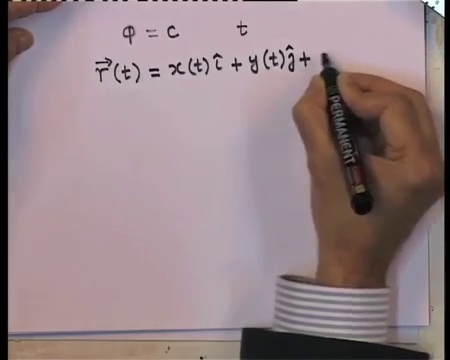 φ = c t
r⃗(t) = x(t) î + y(t) ĵ +
PERMANENT